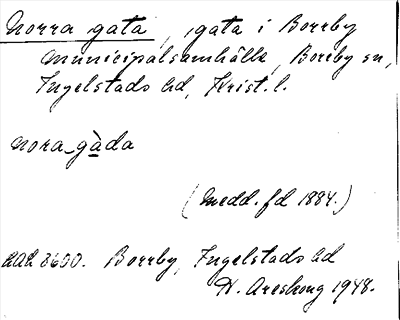 Norra gata, gata i Borrby
municipalsamhälle, Borrby sn,
Ingelstads hd, Krist. l.
nora gàda
(Medd. fd 1884.)
LAL 3600. Borrby, Ingelstads hd
N. Areskog 1948.